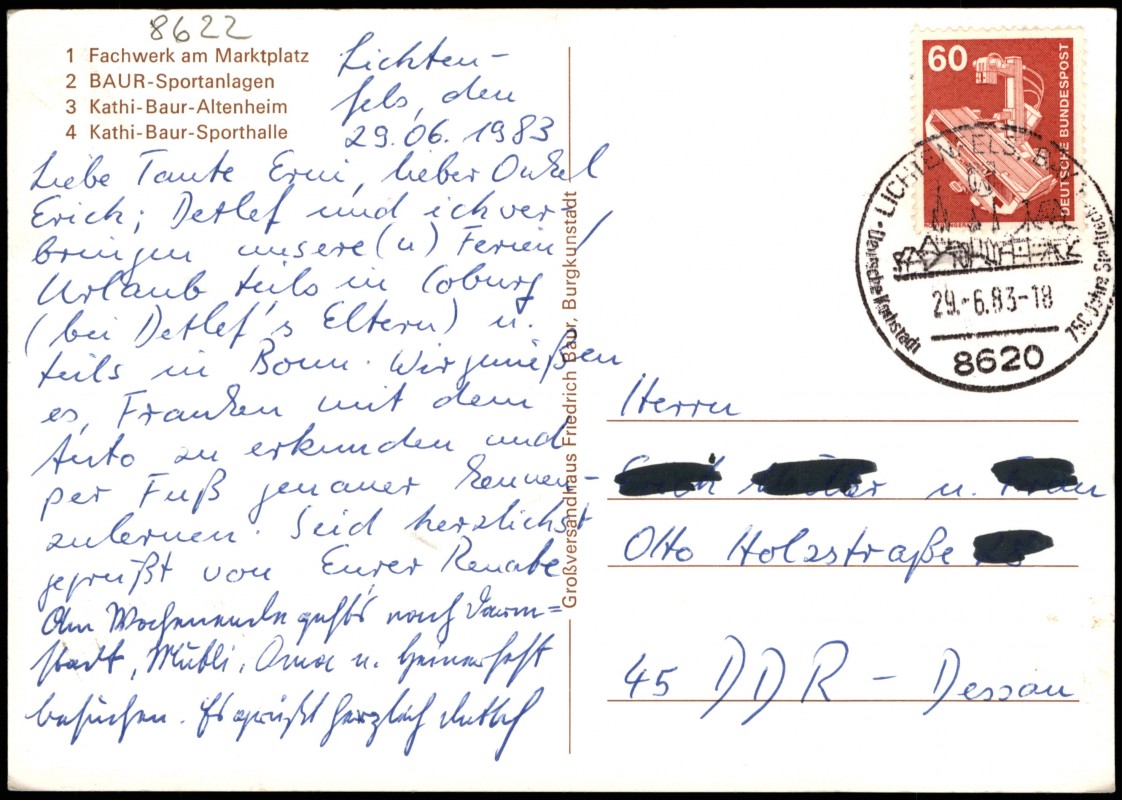 8622
1 Fachwerk am Marktplatz
2 BAUR-Sportanlagen
3 Kathi-Baur-Altenheim
4 Kathi-Baur-Sporthalle
Lichten-
fels, den
29.06. 1983
Liebe Tante Erni, lieber Onkel
Erich; Detlef und ich ver-
bringen unsere(n) Ferien/
Urlaub teils in Coburg
(bei Detlef's Eltern) u.
teils in Bonn. Wir genießen
es, Franken mit dem
Auto zu erkunden und
per Fuß genauer kennen-
zulernen. Seid herzlichst
gegrüßt von Eurer Renate
Am Wochenende geht's nach Darm=
stadt, Mutti, Oma u. Heinerfest
besuchen. Es grüßt herzlich Detlef
Großversandhaus Friedrich Baur, Burgkunstadt
60
DEUTSCHE BUNDESPOST
LICHTENFELS
Deutsche Korbstadt
750 Jahre Stadtrecht
29.-6.83-18
8620
Herrn
u.
Otto Holzstraße
45 DDR - Dessau